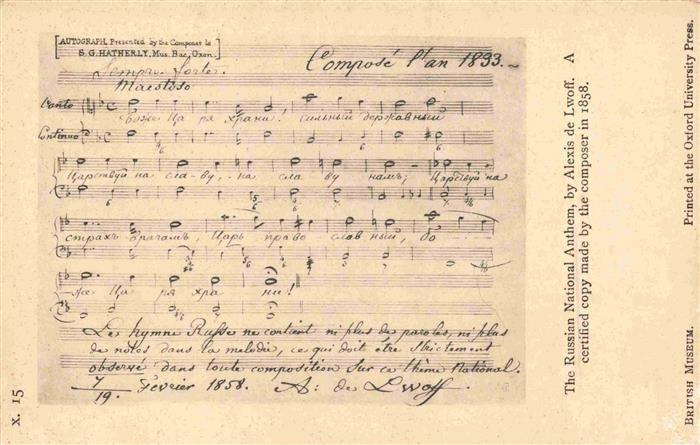 [AUTOGRAPH, Presented by the Composer to]
S. G. HATHERLY, Mus. Bac., Oxon.
Composé l'an 1833.
Sempre forte.
Maestoso
Canto
Боже Ца ря храни, сильный державный
Continuo
Царствуй на сла-ву,-на сла ву намъ; Царствуй на
страхъ врагамъ, Царь право слав ный, бо
же Ца ря хра ни!
Le hymne Russe ne contient ni plus de paroles, ni plus
de notes dans la melodie, ce qui doit être strictement
observé dans toute composition sur ce thême National.
7/19. Fevrier 1858. A: de Lwoff.
x. 15
The Russian National Anthem, by Alexis de Lwoff. A
certified copy made by the composer in 1858.
BRITISH MUSEUM.
Printed at the Oxford University Press.